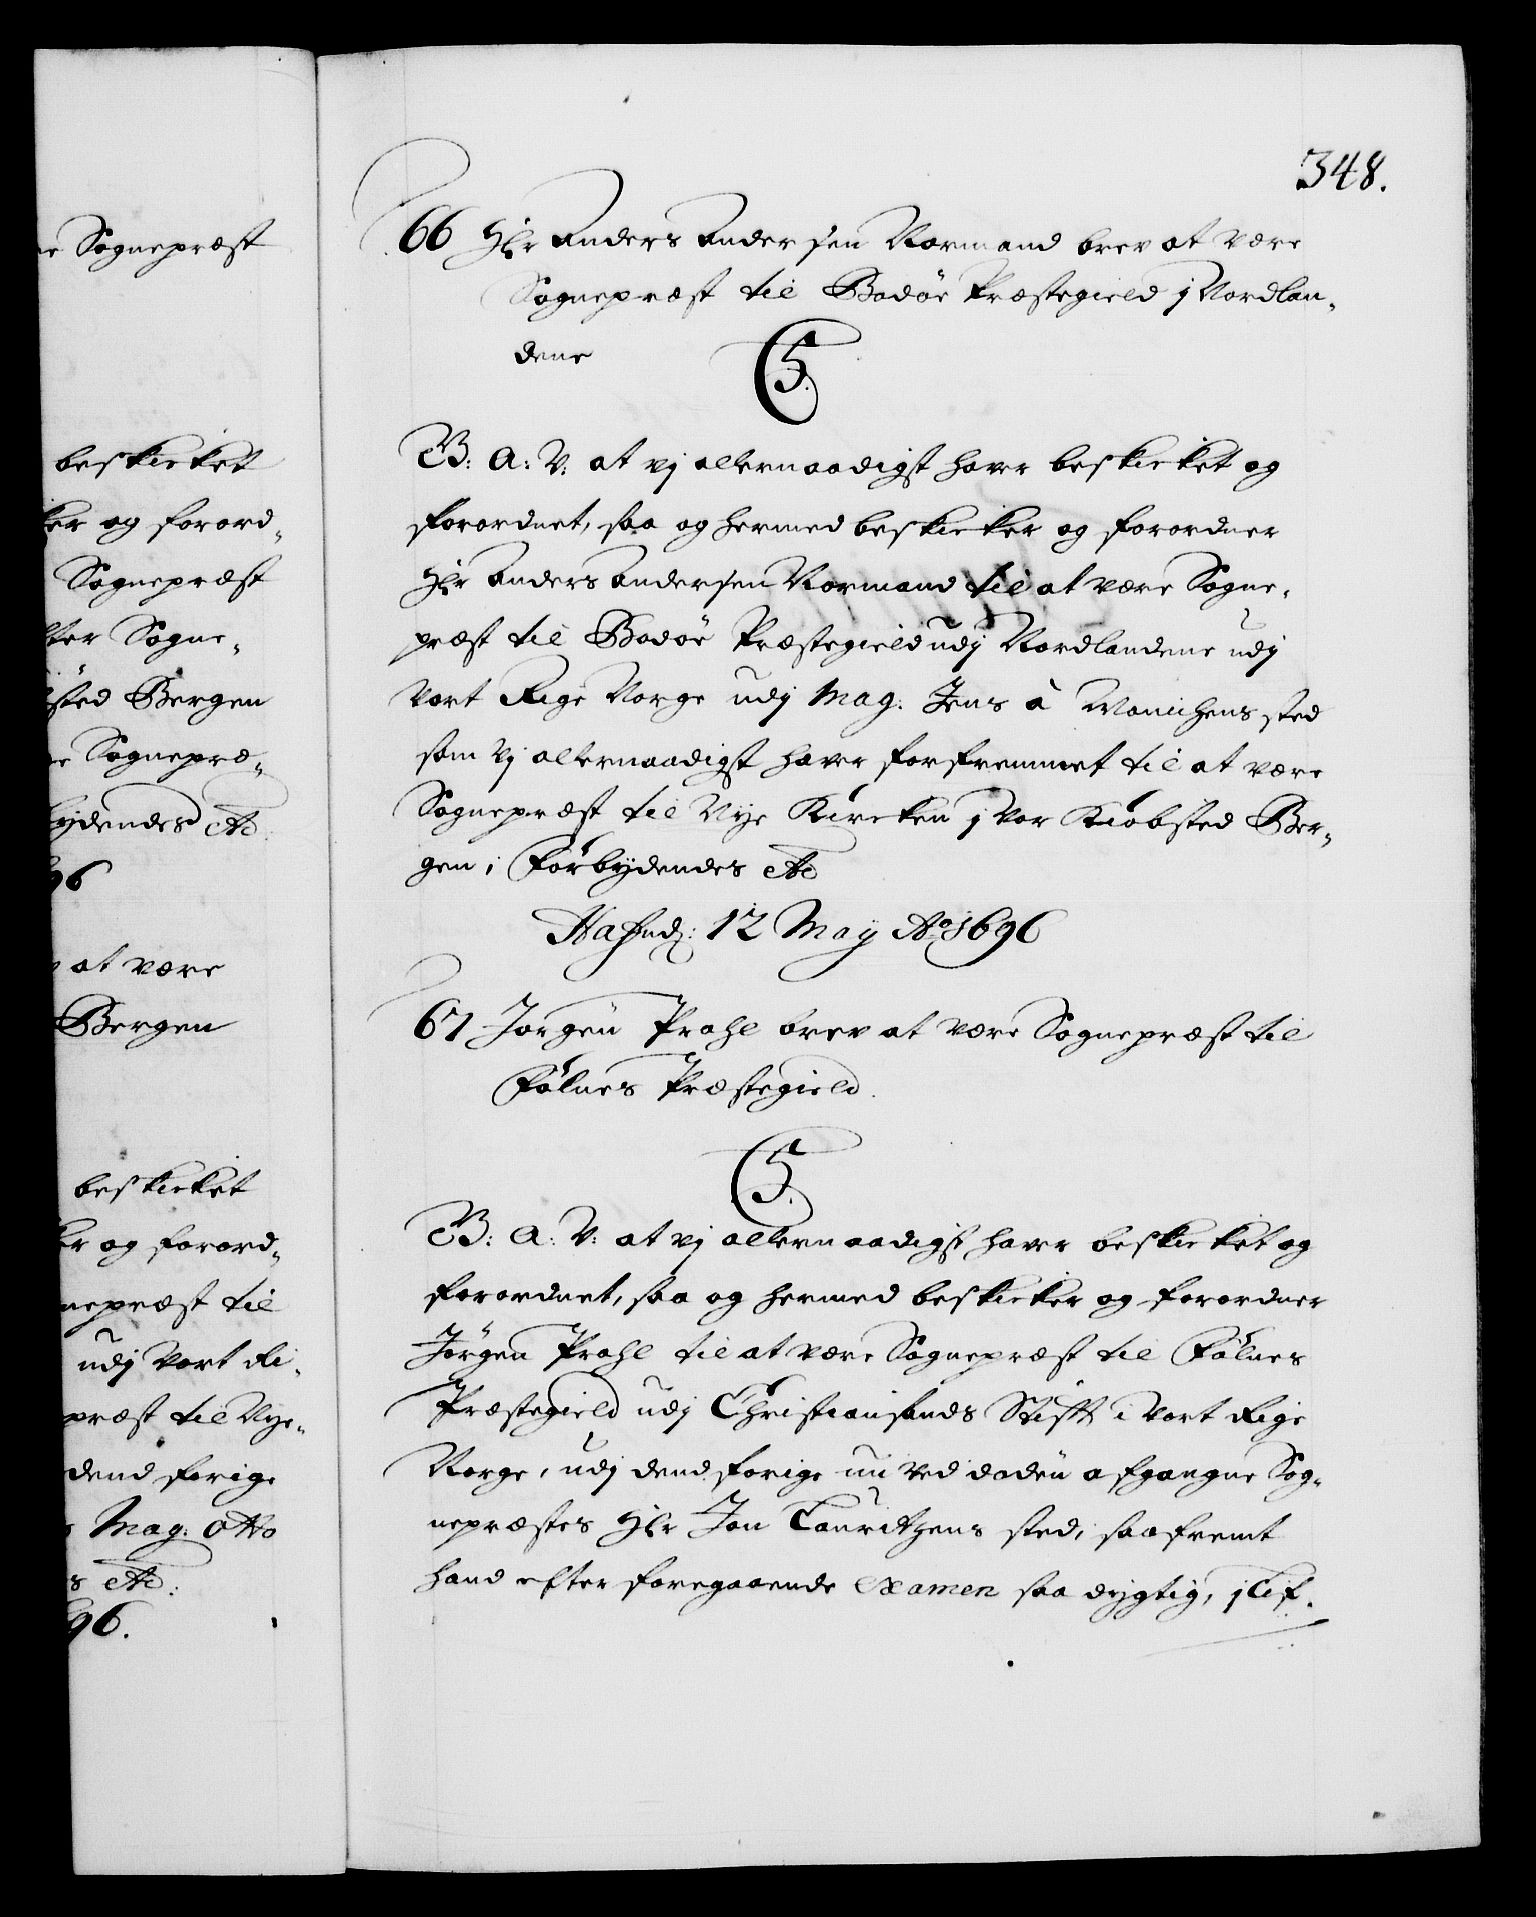 348.
66 Hr Anders Andersen Normand brev at være
Sognepræst til Bodöe Præstegield j Nordlan-
dene
C5.
B: A: V: at vj allernaadigst hafve beskicket og
forordnet, saa og hermed beskicker og forordner
Hr Anders Andersen Normand til at være Sogne-
præst til Bodöe Præstegield udj Nordlandene udj
Vort Rige Norge udj Mag: Jens à Mönichens sted
som Vj allernaadigst hafve forfremmet til at være
Sognepræst til Nye Kircken j Vor Kiöbsted Ber-
gen, Forbydendes Etc
Hafnæ: 12 Maij Ao 1696
67 Jörgen Prahl brev at være Sognepræst til
Fölnes Præstegield.
C5.
B: A: V: at vj allernaadigst hafve beskicket og
forordnet, saa og hermed beskicker og forordner
Jörgen Prahl til at være Sognepræst til Fölnes
Præstegield udj Christiansands Stift i Vort Rige
Norge, udj dend forige nu ved döden afgangne Sog-
nepræstes Hr Jon Lauritzens sted, saafremt
hand efter foregaaende Examen saa dygtig, j Lif-
Sognepræst
beskicket
og forord-
Sognepræst
Sogne-
Bergen
Sognepræ-
Etc
96
at være
Bergen
beskicket
og forord-
til
udj Vort Ri-
præst til Nye-
dend forige
Mag: Otto
Etc:
96.